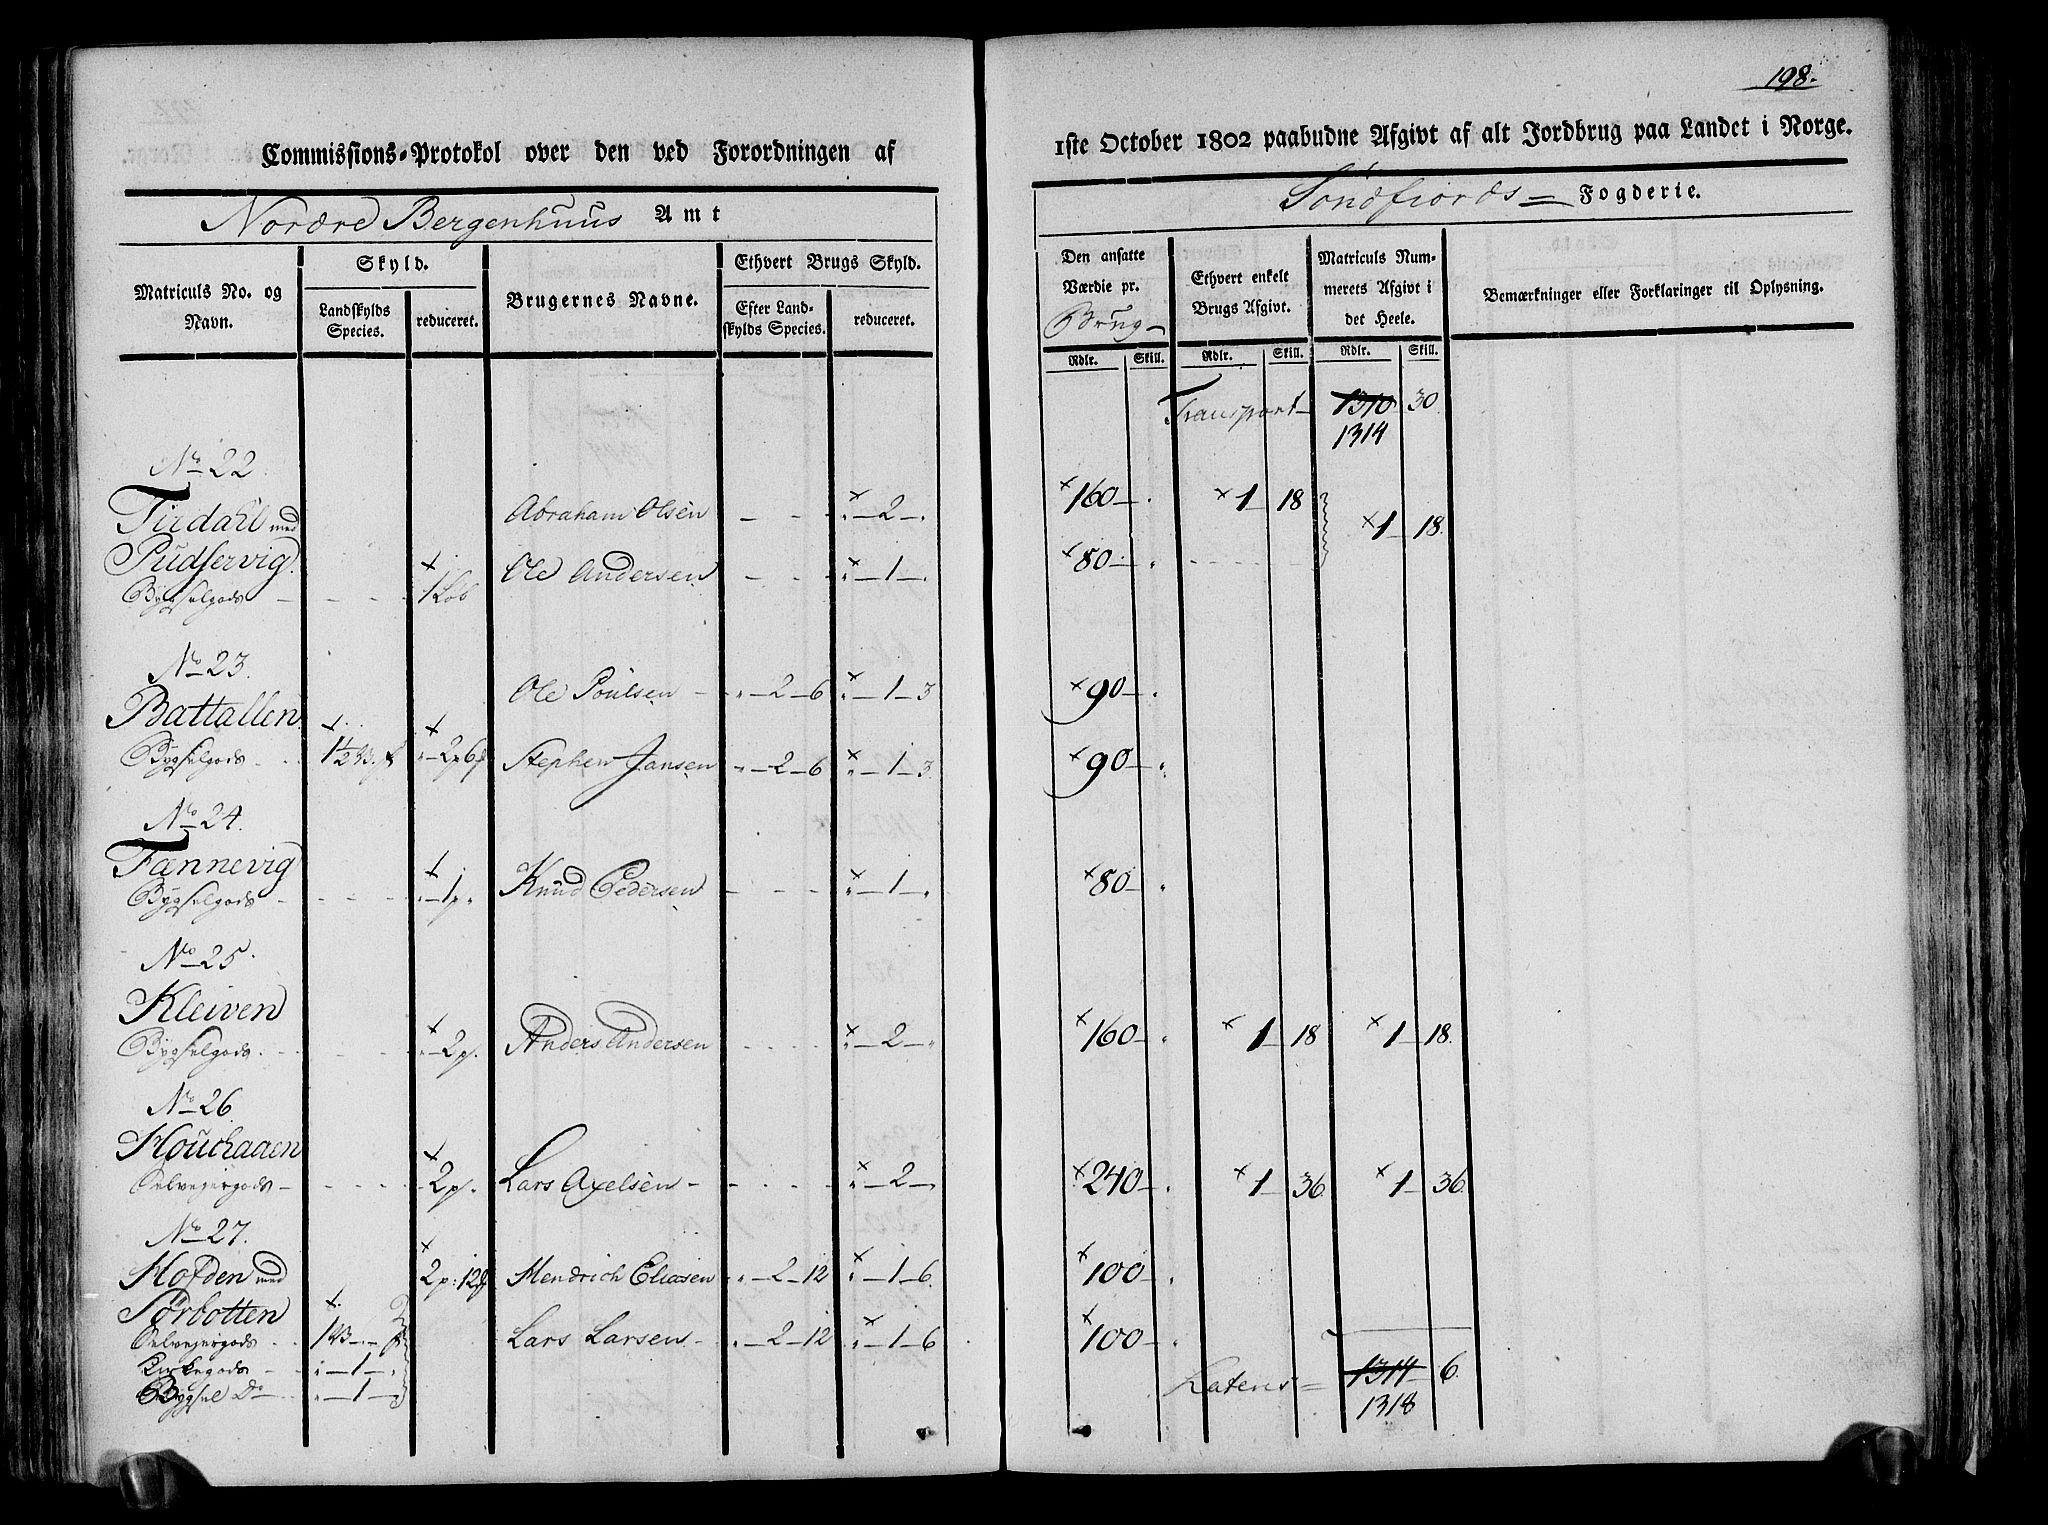 198.
Commissions-Protokol over den ved Forordningen af 1ste October 1802 paabudne Afgivt af alt Jordbrug paa Landet i Norge.
Nordre Bergenhuus Amt
Søndfiords Fogderie.
Matriculs No. og Navn.
Skyld.
Landskylds Species.
reduceret.
Brugernes Navne.
Ethvert Brugs Skyld.
Efter Landskylds Species.
reduceret.
Den ansatte Værdie pr. Brug
Rdlr. Skill.
Ethvert enkelt Brugs Afgivt.
Rdlr. Skill.
Matriculs Nummerets Afgivt i det Heele.
Rdlr. Skill.
Bemærkninger eller Forklaringer til Oplysning.
Transport 1310 30
1314
No 22.
Tirdahl med Abraham Olsen 2 160 1 18 1 18
Pudservig. Ole Andersen 1 80
Bygselgods 1 Løb
No 23.
Battallen Ole Poulsen 2 6 1 3 90
Bygselgods 1½ 2 p 6 Stephen Jansen 2 6 1 3 90
No 24.
Fannevig Knud Pedersen 1 80
Bygselgods 1 p
No 25.
Kleiven
Bygselgods 2 p. Anders Andersen 2 160 1 18 1 18
No 26
Houchaaen
Selvejergods 2 p. Lars Axelsen 2 240 1 36 1 36
No 27.
Hofden med 2 p: 12 Hendrich Eliasen 2 12 1 6 100
Sørbotten
Selvejergods 1 Lars Larsen 2 12 1 6 100
Kirkegods 1
Bygsel Do 1
Latens 1314 6
1318